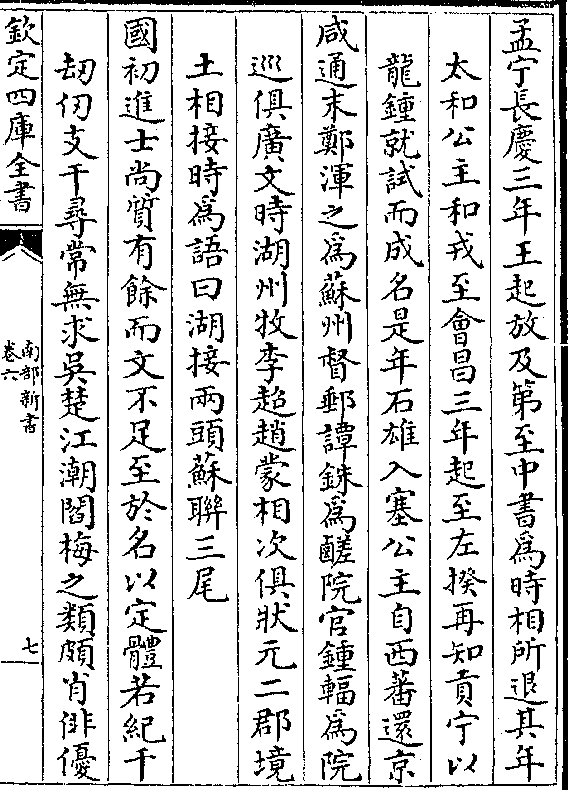 孟宁長慶三年王起放及第至中書爲時相所退其年
太和公主和戎至會昌三年起至左揆再知貢宁以
龍鍾就試而成名是年石雄入塞公主自西蕃還京
咸通末鄭渾之爲蘇州督郵譚銖爲鹺院官鍾輻爲院
巡俱廣文時湖州牧李超趙蒙相次俱狀元二郡境
土相接時爲語曰湖接兩頭蘇聯三尾
國初進士尚質有餘而文不足至於名以定體若紀干
刼仞支干尋常無求吳楚江潮閻梅之類頗肖俳優
欽定四庫全書
南部新書
卷六
七